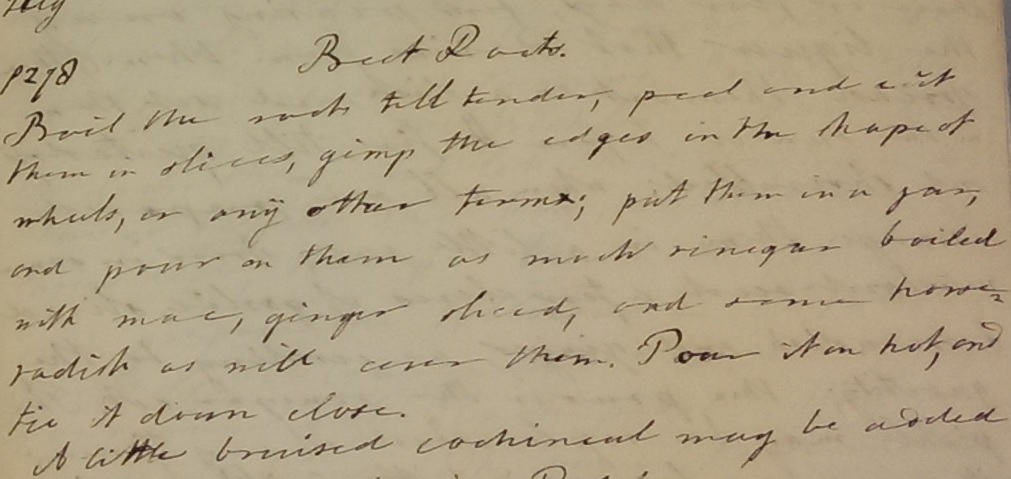 Beet Roots.
p278
Boil the roots till tender, peel and cut
them in slices, gimp the edges in the shape of
wheels, or any other form; put them in a jar,
and pour on them as much vinegar boiled
with mace, ginger sliced, and some horse=
radish as will cover them. Pour it on hot, and
tie it down close.
A little bruised cochineal may be added